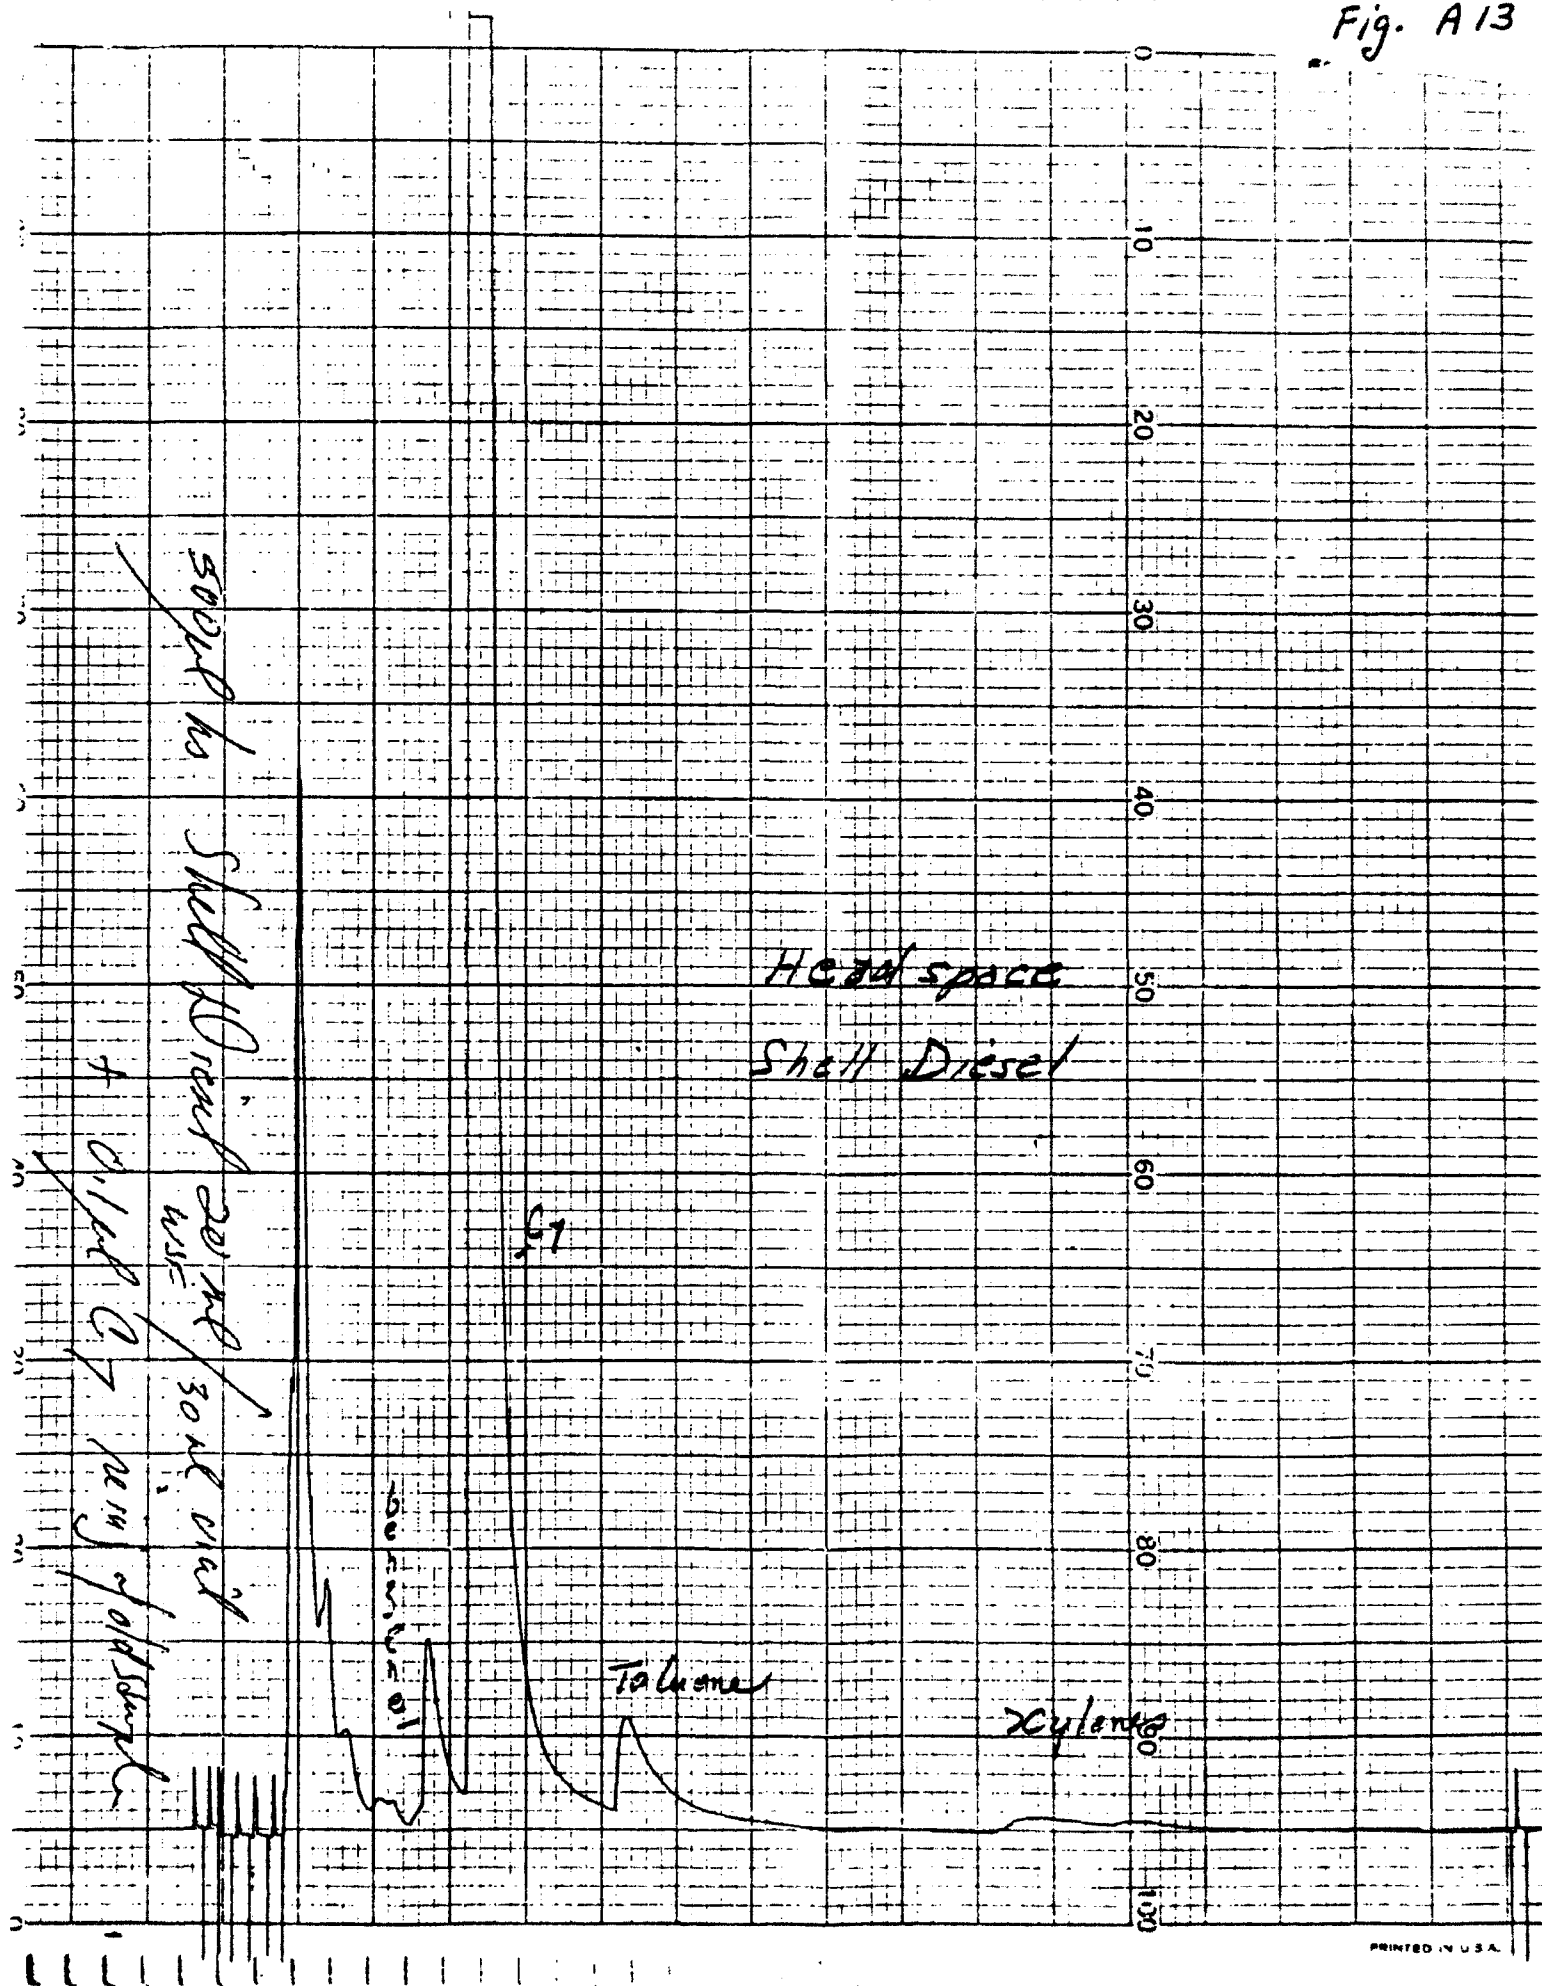 Fig. A13
0
10
20
30
40
50
60
70
80
90
100
Head space
Shell Diesel
C7
Toluene
Xylenes
500µl hs Shell Diesel 20 ml / 30 ml vial
WSF
+ 0.1µl C7 reinj of old sample
PRINTED IN U.S.A.